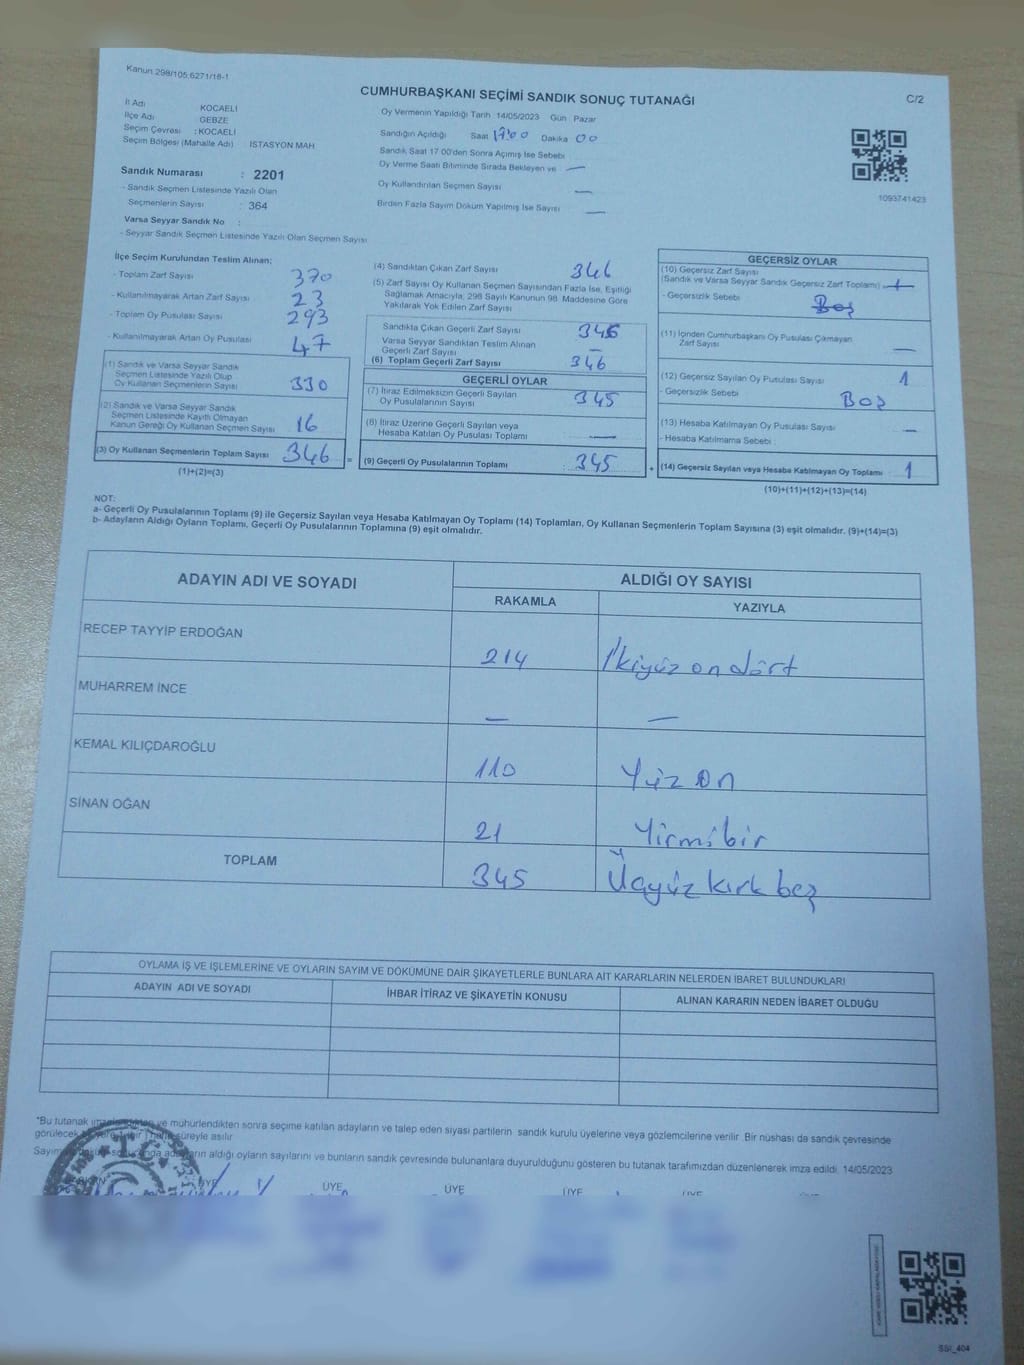 Kanun 298/105,6271/18-1
CUMHURBAŞKANI SEÇİMİ SANDIK SONUÇ TUTANAĞI
C/2
İl Adı KOCAELİ
İlçe Adı GEBZE
Seçim Çevresi : KOCAELİ
Seçim Bölgesi (Mahalle Adı) : İSTASYON MAH
Sandık Numarası : 2201
- Sandık Seçmen Listesinde Yazılı Olan
Seçmenlerin Sayısı : 364
Varsa Seyyar Sandık No :
- Seyyar Sandık Seçmen Listesinde Yazılı Olan Seçmen Sayısı
Oy Vermenin Yapıldığı Tarih : 14/05/2023 Gün : Pazar
Sandığın Açıldığı Saat 17:00 Dakika 00
Sandık Saat 17 00'den Sonra Açımış İse Sebebi
Oy Verme Saati Bitiminde Sırada Bekleyen ve —
Oy Kullandırılan Seçmen Sayısı —
Birden Fazla Sayım Döküm Yapılmış İse Sayısı —
1093741423
İlçe Seçim Kurulundan Teslim Alınan:
- Toplam Zarf Sayısı 370
- Kullanılmayarak Artan Zarf Sayısı 23
- Toplam Oy Pusulası Sayısı 293
- Kullanılmayarak Artan Oy Pusulası 47
(1) Sandık ve Varsa Seyyar Sandık
Seçmen Listesinde Yazılı Olup
Oy Kullanan Seçmenlerin Sayısı 330
(2) Sandık ve Varsa Seyyar Sandık
Seçmen Listesinde Kayıtlı Olmayan
Kanun Gereği Oy Kullanan Seçmen Sayısı 16
(3) Oy Kullanan Seçmenlerin Toplam Sayısı 346 =
(1)+(2)=(3)
(4) Sandıktan Çıkan Zarf Sayısı 346
(5) Zarf Sayısı Oy Kullanan Seçmen Sayısından Fazla İse, Eşitliği
Sağlamak Amacıyla, 298 Sayılı Kanunun 98. Maddesine Göre
Yakılarak Yok Edilen Zarf Sayısı
Sandıkta Çıkan Geçerli Zarf Sayısı 346
Varsa Seyyar Sandıktan Teslim Alınan
Geçerli Zarf Sayısı —
(6) Toplam Geçerli Zarf Sayısı 346
GEÇERLİ OYLAR
(7) İtiraz Edilmeksizin Geçerli Sayılan
Oy Pusulalarının Sayısı 345
(8) İtiraz Üzerine Geçerli Sayılan veya
Hesaba Katılan Oy Pusulası Toplamı —
(9) Geçerli Oy Pusulalarının Toplamı : 345 +
GEÇERSİZ OYLAR
(10) Geçersiz Zarf Sayısı
(Sandık ve Varsa Seyyar Sandık Geçersiz Zarf Toplamı) 1
- Geçersizlik Sebebi Boş
(11) İçinden Cumhurbaşkanı Oy Pusulası Çıkmayan
Zarf Sayısı —
(12) Geçersiz Sayılan Oy Pusulası Sayısı 1
- Geçersizlik Sebebi Boş
(13) Hesaba Katılmayan Oy Pusulası Sayısı —
- Hesaba Katılmama Sebebi :
(14) Geçersiz Sayılan veya Hesaba Katılmayan Oy Toplamı 1
(10)+(11)+(12)+(13)=(14)
NOT:
a- Geçerli Oy Pusulalarının Toplamı (9) ile Geçersiz Sayılan veya Hesaba Katılmayan Oy Toplamı (14) Toplamları, Oy Kullanan Seçmenlerin Toplam Sayısına (3) eşit olmalıdır. (9)+(14)=(3)
b- Adayların Aldığı Oyların Toplamı, Geçerli Oy Pusulalarının Toplamına (9) eşit olmalıdır.
ADAYIN ADI VE SOYADI
ALDIĞI OY SAYISI
RAKAMLA YAZIYLA
RECEP TAYYİP ERDOĞAN 214 İkiyüz on dört
MUHARREM İNCE — —
KEMAL KILIÇDAROĞLU 110 Yüz on
SİNAN OĞAN 21 Yirmi bir
TOPLAM 345 Üçyüz kırk beş
OYLAMA İŞ VE İŞLEMLERİNE VE OYLARIN SAYIM VE DÖKÜMÜNE DAİR ŞİKAYETLERLE BUNLARA AİT KARARLARIN NELERDEN İBARET BULUNDUKLARI
ADAYIN ADI VE SOYADI İHBAR İTİRAZ VE ŞİKAYETİN KONUSU ALINAN KARARIN NEDEN İBARET OLDUĞU
*Bu tutanak ve mühürlendikten sonra seçime katılan adayların ve talep eden siyasi partilerin sandık kurulu üyelerine veya gözlemcilerine verilir. Bir nüshası da sandık çevresinde
görülecek süreyle asılır
Sayım adayların aldığı oyların sayılarını ve bunların sandık çevresinde bulunanlara duyurulduğunu gösteren bu tutanak tarafımızdan düzenlenerek imza edildi. 14/05/2023
T.C.
ÜYE ÜYE ÜYE ÜYE ÜYE
SSİ_404